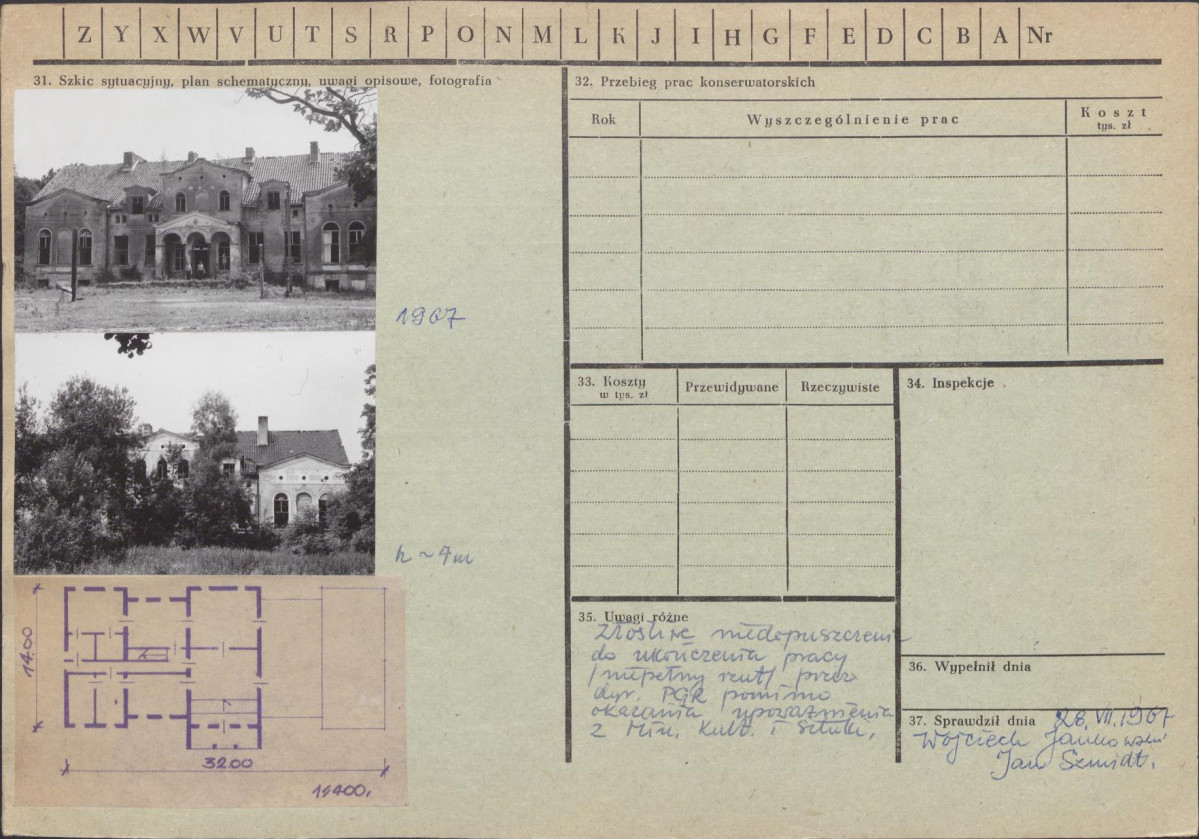 Z Y X W V U T S R P O N M L K J I H G F E D C B A Nr
31. Szkic sytuacyjny, plan schematyczny, uwagi opisowe, fotografia
1967
h ~ 7m
14.00
32.00
1:400.
32. Przebieg prac konserwatorskich
Rok
Wyszczególnienie prac
Koszt
tys. zł
33. Koszty
w tys. zł
Przewidywane
Rzeczywiste
34. Inspekcje
35. Uwagi różne
Złośliwe niedopuszczenie
do ukończenia pracy
/niepełny rzut/ przez
dyr. PGR pomimo
okazania upoważnienia
z Min. Kult. i Sztuki.
36. Wypełnił dnia
37. Sprawdził dnia 28.VII.1967
Wojciech Jankowski
Jan Szmidt.